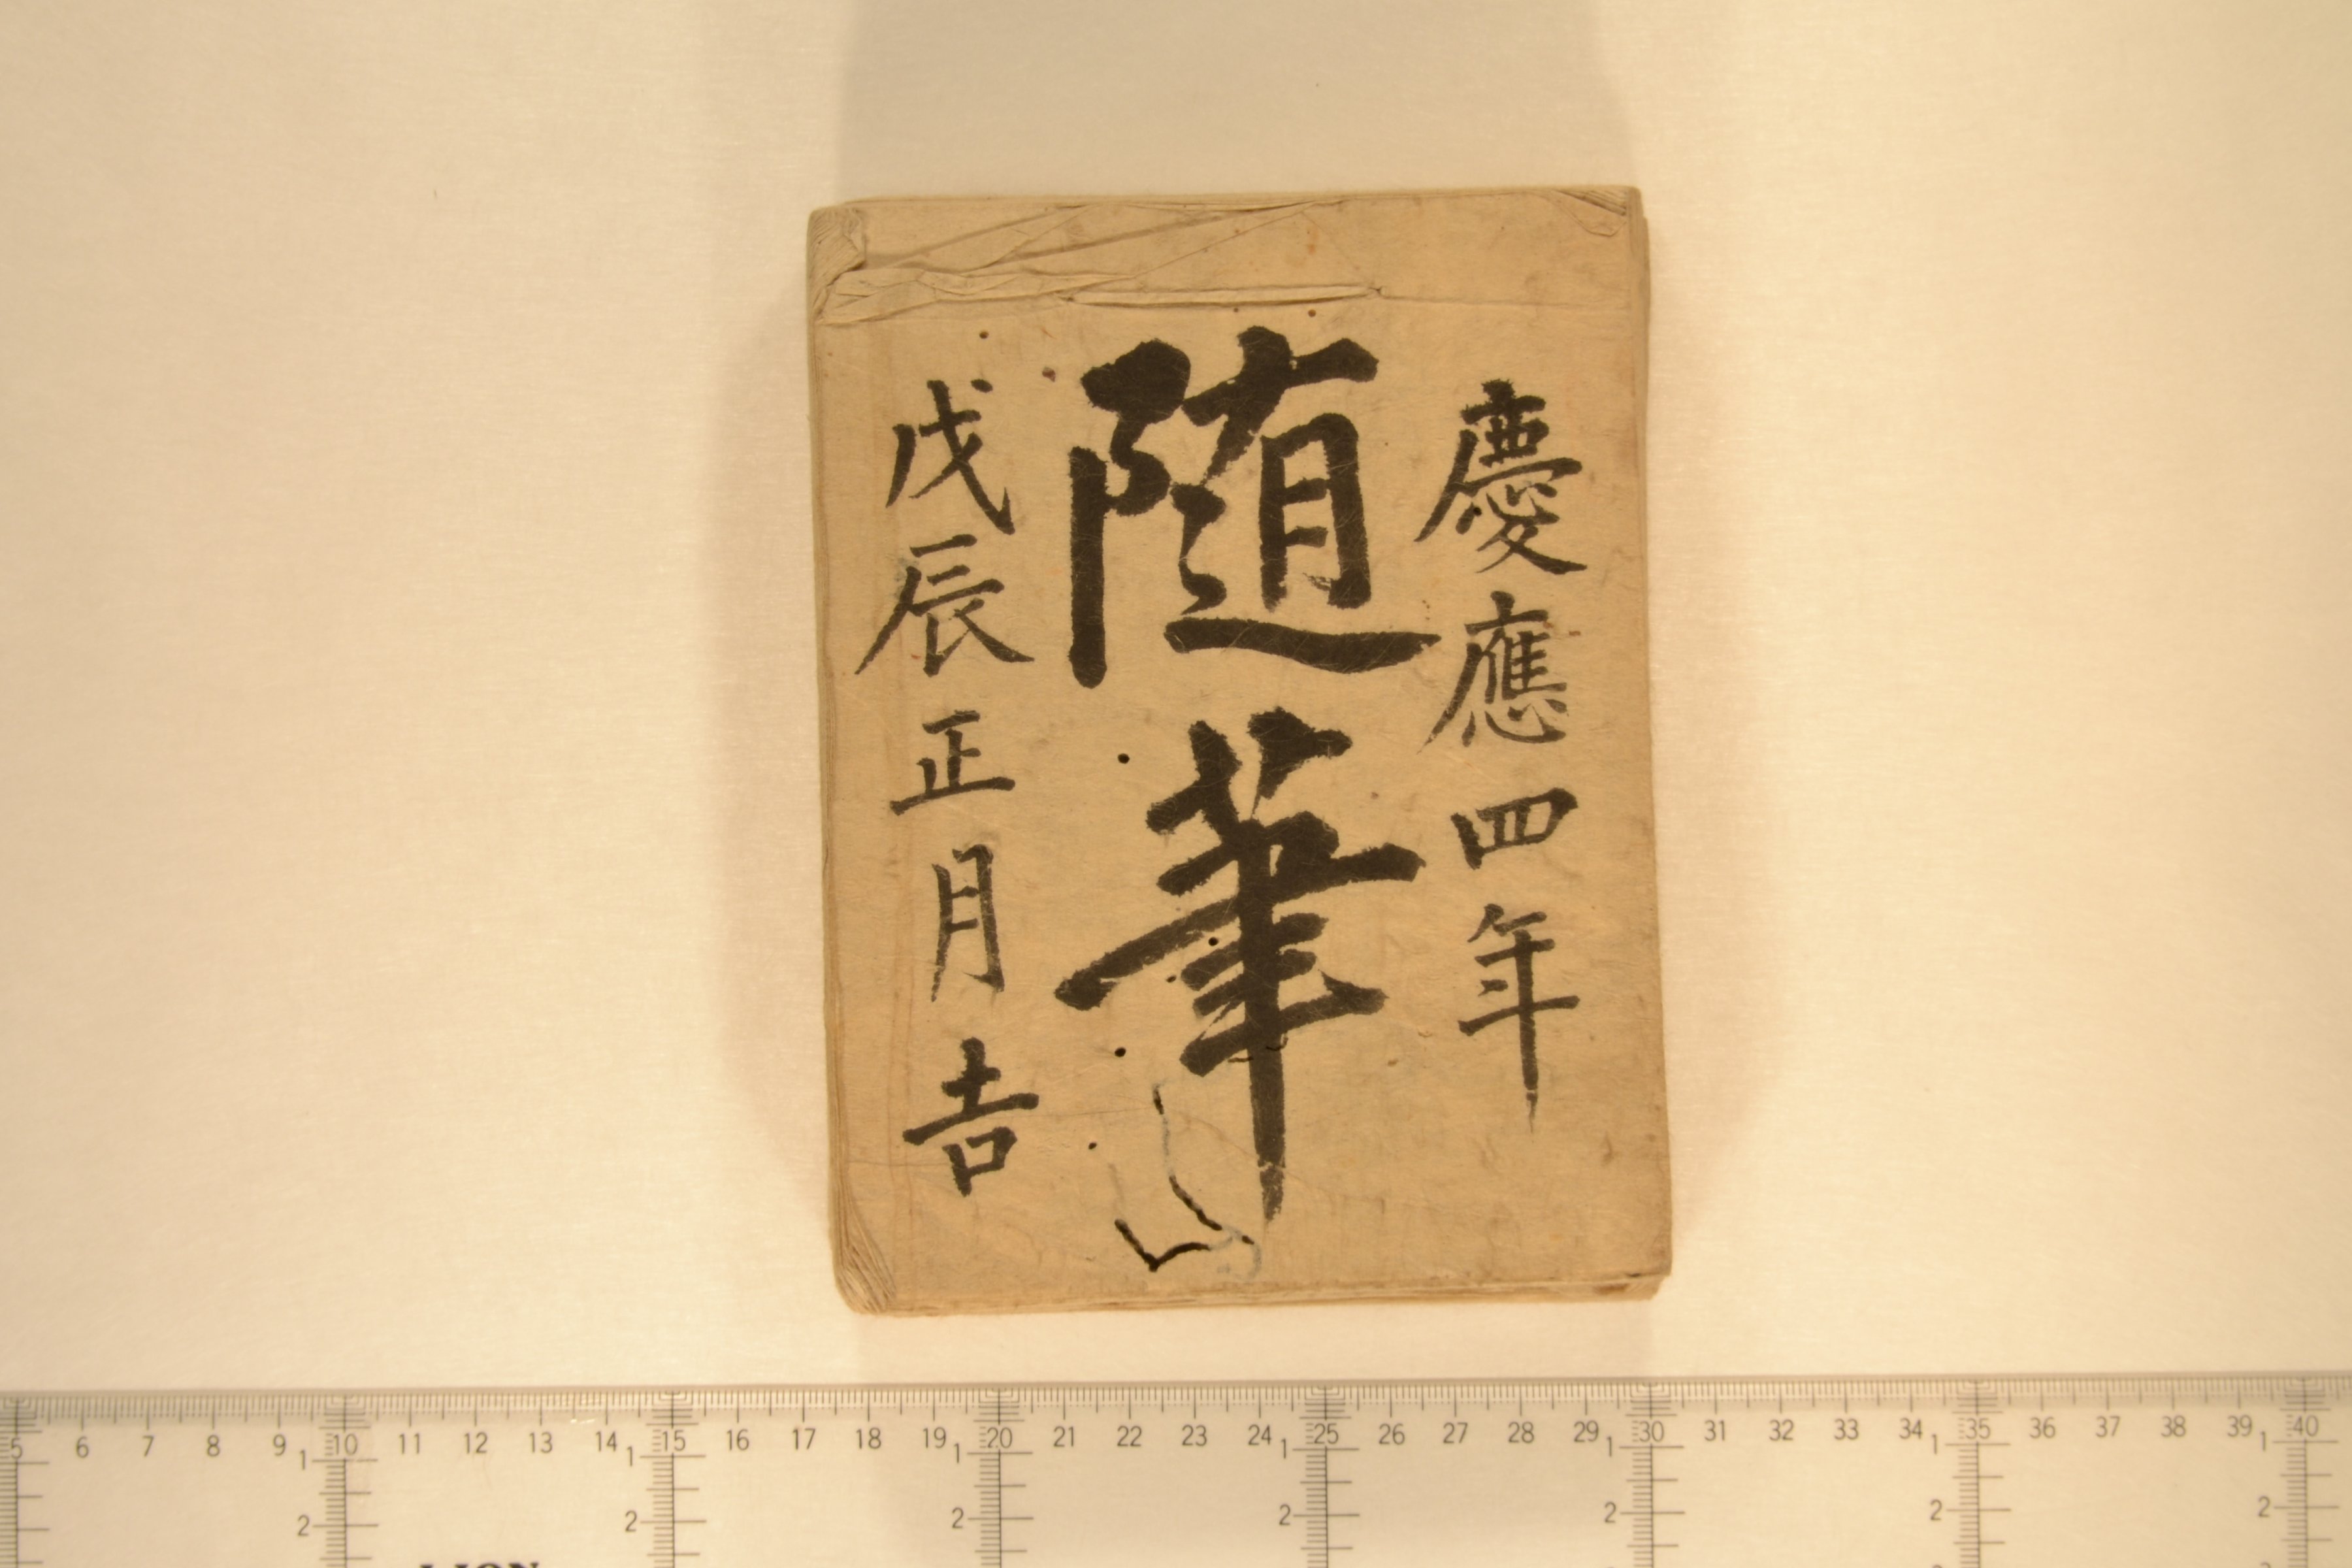 慶應四年
随筆
戊辰正月吉
5 6 7 8 9 10 11 12 13 14 15 16 17 18 19 20 21 22 23 24 25 26 27 28 29 30 31 32 33 34 35 36 37 38 39 40
1 1 1 1 1 1 1
2 2 2 2 2 2 2
LION